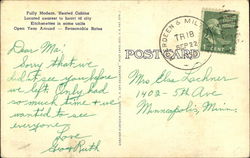 Fully Modern, Heated Cabins
Located nearest to heart of city
Kitchenettes in some units
Open Year Around — Reasonable Rates
Dear Ma:
Sorry that we
didn't see you before
we left. Only had
so much time & we
wanted to see
everyone.
Love
& Ruth
POST CARD
ABERDEEN & MIL
TR 18
SEP 22
Mrs. Elsie Lochner
1402 - 5th Ave
Minneapolis, Minn.